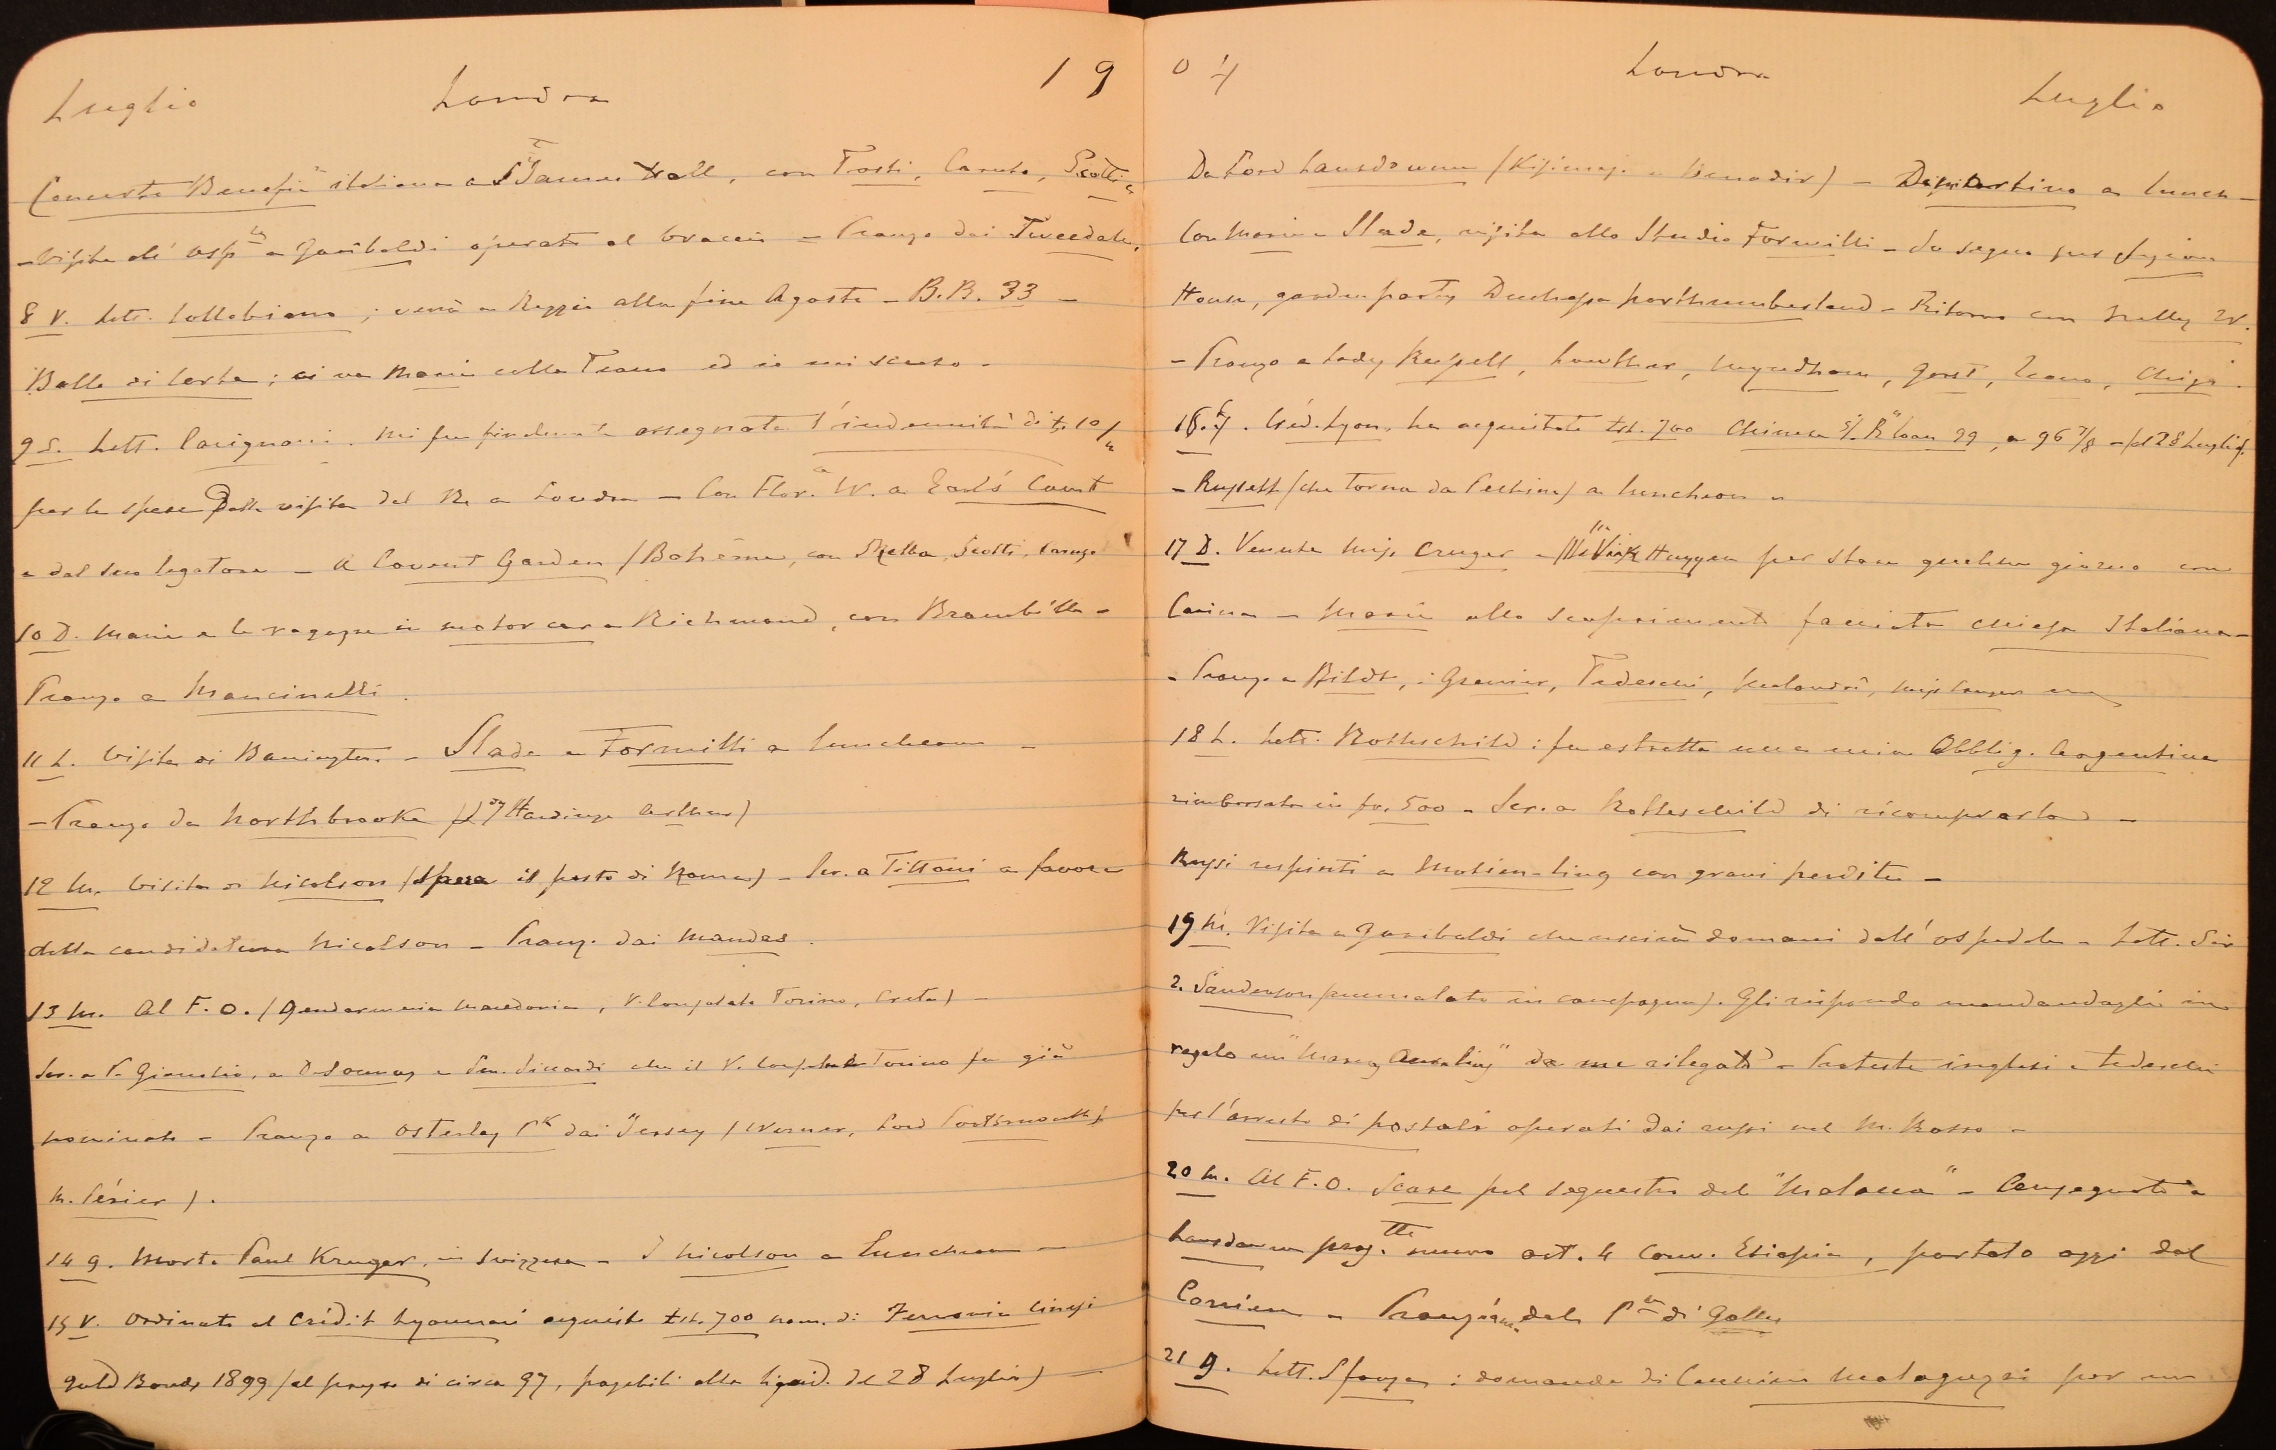 Luglio Londra 19
Concerto Benefic italiano a St James Hall, con Tosti, Caruso, Scotti &
- Visita all' osple a Garibaldi operato al braccio - Pranzo dai Tweedale.
8 V. Lett. Collobiano ; verrà a Reggio alla fine Agosto - B.B. 33 -
Ballo di Corte ; ci va Maria colla Train ed io mi scuso -
9 S. Lett. Cavignari. Mi fu assegnata l'indennità di £. 10/m
per le spese della visita del Re a Londra - Con Flor.a W. a Earl's Court
e dal suo legatore - A Covent Garden (Bohême, con Melba, Scotti, Caruso
10 D. Maria e le ragazze in motor car a Richmond, con Brambilla -
Pranzo a Mancinelli.
11 L. Visita di Barrington - Slade e Formilli a luncheon -
- Pranzo da Northbrooke (Ldy Hardinge Arthur)
12 M. Visita di Nicolson (spera il posto di Roma) - Scr. a Tittoni a favore
della candidatura Nicolson - Pranz. dai Mandas.
13 M. Al F.O. (Gendarmeria Macedonia, V. Consolato Torino, Creta) -
Scr. a P. Giacchio, a Delaunay e Sen. Siccardi che il V. Console Torino fu già
nominato - Pranzo a Osterley Pk dai Jersey (Werner, Lord Portsmouth,
M. Périer).
14 G. Morto Paul Kruger, in Svizzera - I Nicolson a luncheon -
15 V. Ordinato al Crédit Lyonnais acquisto Lst. 700 nom. di Ferrovia Cinesi
gold Bonds 1899 (al prezzo di circa 97, pagabili alla liquid. del 28 Luglio) -
04 Londra Luglio
Da Lord Lansdowne (Kisimajo e Benadir) - Demartino a lunch -
Con Maria e Slade, visita allo Studio Formilli - In seguo per Syion
House, garden party Duchessa Northumberland - Ritorno con Nelly W.
- Pranzo a Lady Russell, Lowther, Wyndham, Gorst, Chigi.
16. S. Créd. Lyon. ha acquistato Lst. 700 Chinese 5% R. loan 99, a 96 7/8 - pel 28 Luglio.
- Russell (che torna da Pechino) a luncheon -
17 D. Venute Miss Cruger e Mlle Huggen per stare qualche giorno con
Carina - Maria allo scoprimento facciata chiesa Italiana -
- Pranzo a Bildt, i Grenier, Tedeschi, Miss Cruger ecc
18 L. Lett. Rothschild : fu estratta una mia Obblig. Argentina
rimborsata in fr. 500 - Scr. a Rothschild di ricomprarla -
Russi respinti a Motien-ling con gravi perdite -
19 M. Visita a Garibaldi che uscirà domani dall'ospedale - Lett. Sir
T. Sanderson (ammalato in campagna). Gli rispondo mandandogli in
regalo un "Marcus Aurelius" da me rilegato - Proteste inglesi e tedesche
per l'arresto di postali operati dai russi nel M. Rosso -
20 M. Al F.O. Scase pel sequestro del "Malacca" - Consegnato a
Lansdowne progtto nuovo art. 4 Conv. Etiopia, portato oggi dal
Corriere - Pranziamo dal Pre di Galles
21 G. Lett. Sforza : domanda di Camicia Malaguzzi per un